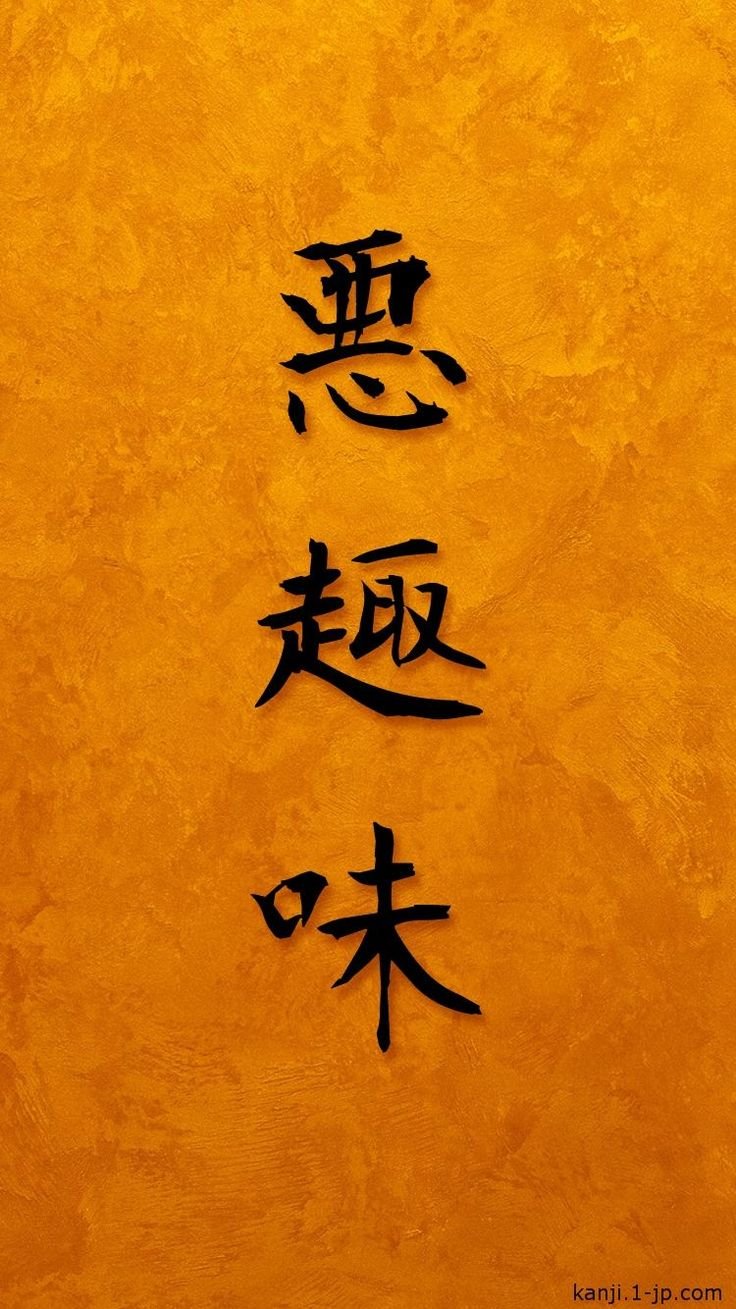 悪趣味
kanji.1-jp.com